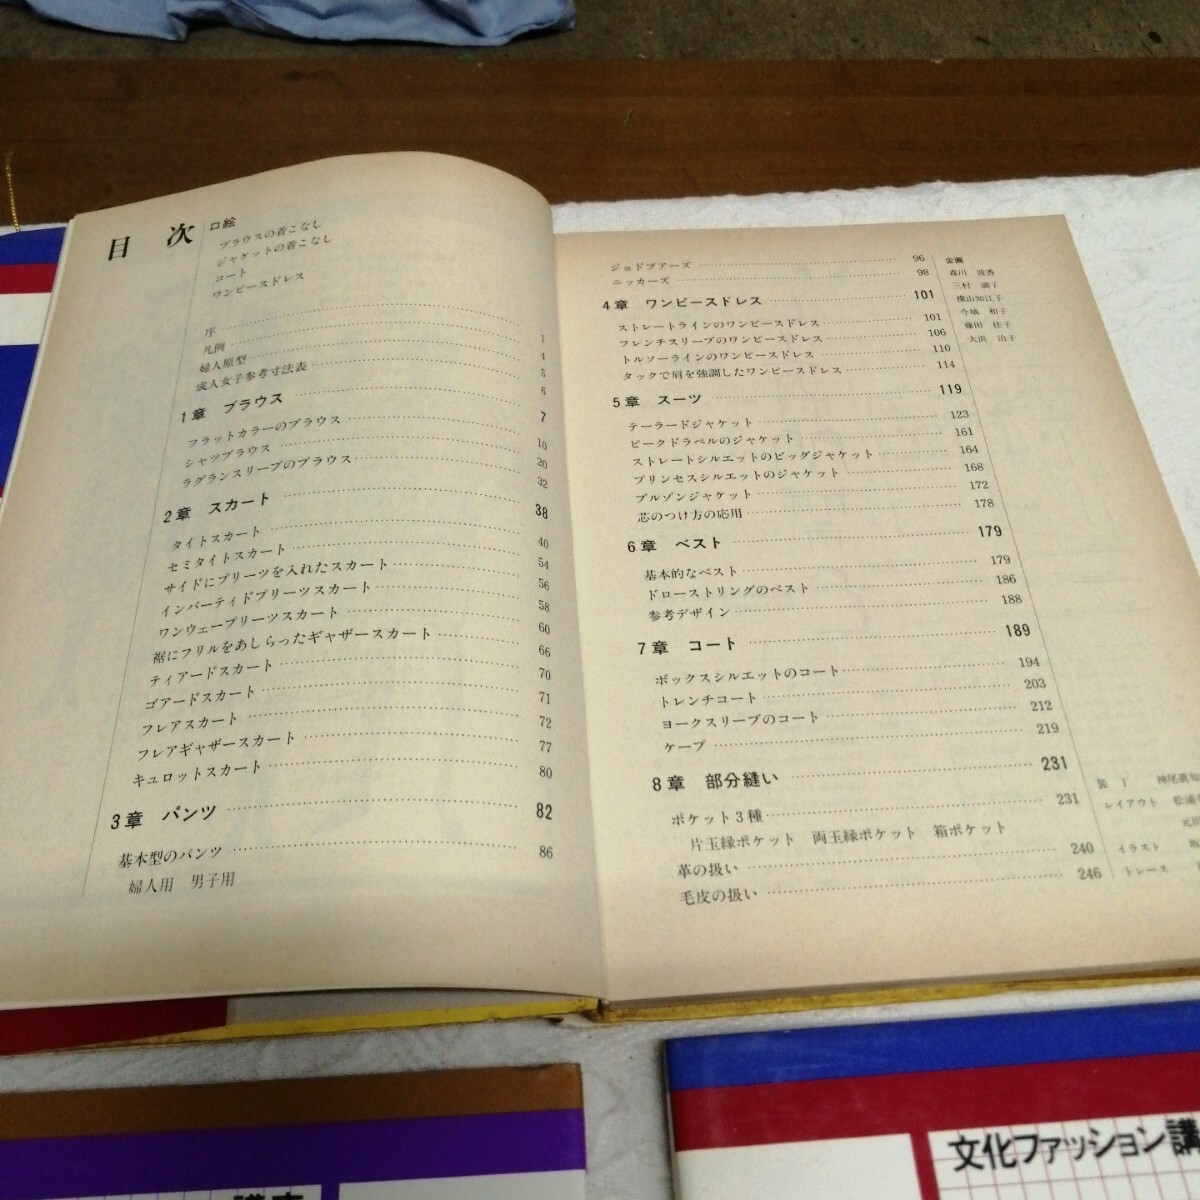 目 次
口絵
ブラウスの着こなし
ジャケットの着こなし
コート
ワンピースドレス
序 1
凡例 4
婦人原型 5
成人女子参考寸法表 6
1章 ブラウス 7
フラットカラーのブラウス 10
シャツブラウス 20
ラグランスリーブのブラウス 32
2章 スカート 38
タイトスカート 40
セミタイトスカート 54
サイドにプリーツを入れたスカート 56
インバーティドプリーツスカート 58
ワンウェープリーツスカート 60
裾にフリルをあしらったギャザースカート 66
ティアードスカート 70
ゴアードスカート 71
フレアスカート 72
フレアギャザースカート 77
キュロットスカート 80
3章 パンツ 82
基本型のパンツ 86
婦人用 男子用
ジョドプアーズ 96
ニッカーズ 98
4章 ワンピースドレス 101
ストレートラインのワンピースドレス 101
フレンチスリーブのワンピースドレス 106
トルソーラインのワンピースドレス 110
タックで肩を強調したワンピースドレス 114
5章 スーツ 119
テーラードジャケット 123
ピークドラペルのジャケット 161
ストレートシルエットのビッグジャケット 164
プリンセスシルエットのジャケット 168
ブルゾンジャケット 172
芯のつけ方の応用 178
6章 ベスト 179
基本的なベスト 179
ドローストリングのベスト 186
参考デザイン 188
7章 コート 189
ボックスシルエットのコート 194
トレンチコート 203
ヨークスリーブのコート 212
ケープ 219
8章 部分縫い 231
ポケット3種 231
片玉縁ポケット 両玉縁ポケット 箱ポケット
革の扱い 240
毛皮の扱い 246
企画
森川
三村 満子
横山知江子
今城 和子
藤田 佳子
大浜 治子
装 丁
レイアウト
イラスト
トレース
文化ファッション講
講座